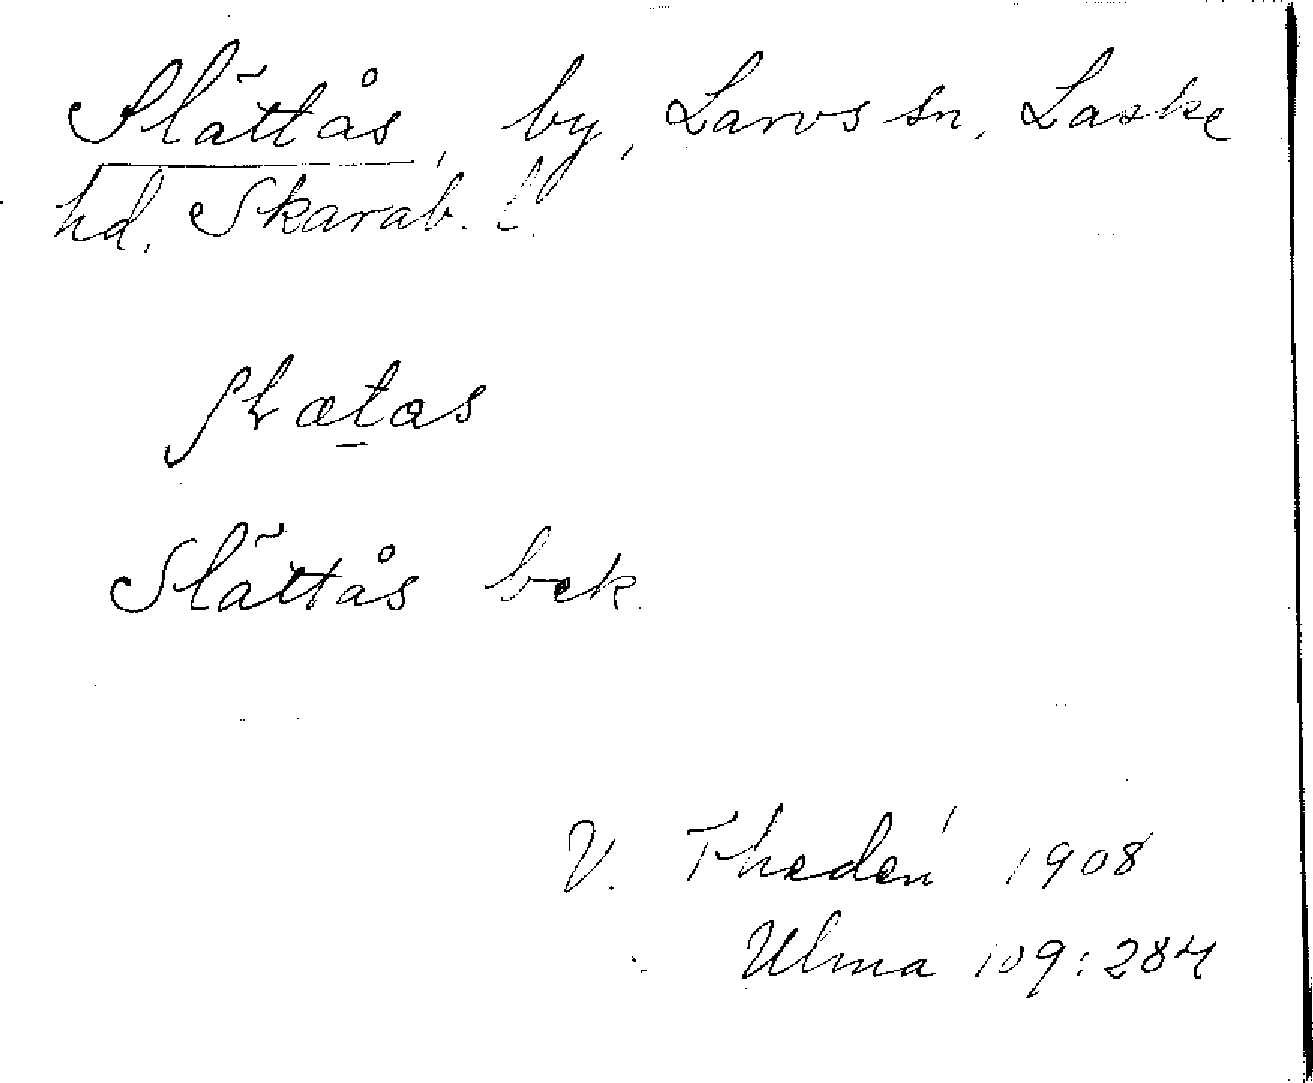 Slättås, by, Larvs sn, Laske
hd. Skarab. l.
Slättås bek.
V. Thedén 1908
Ulma 109:284